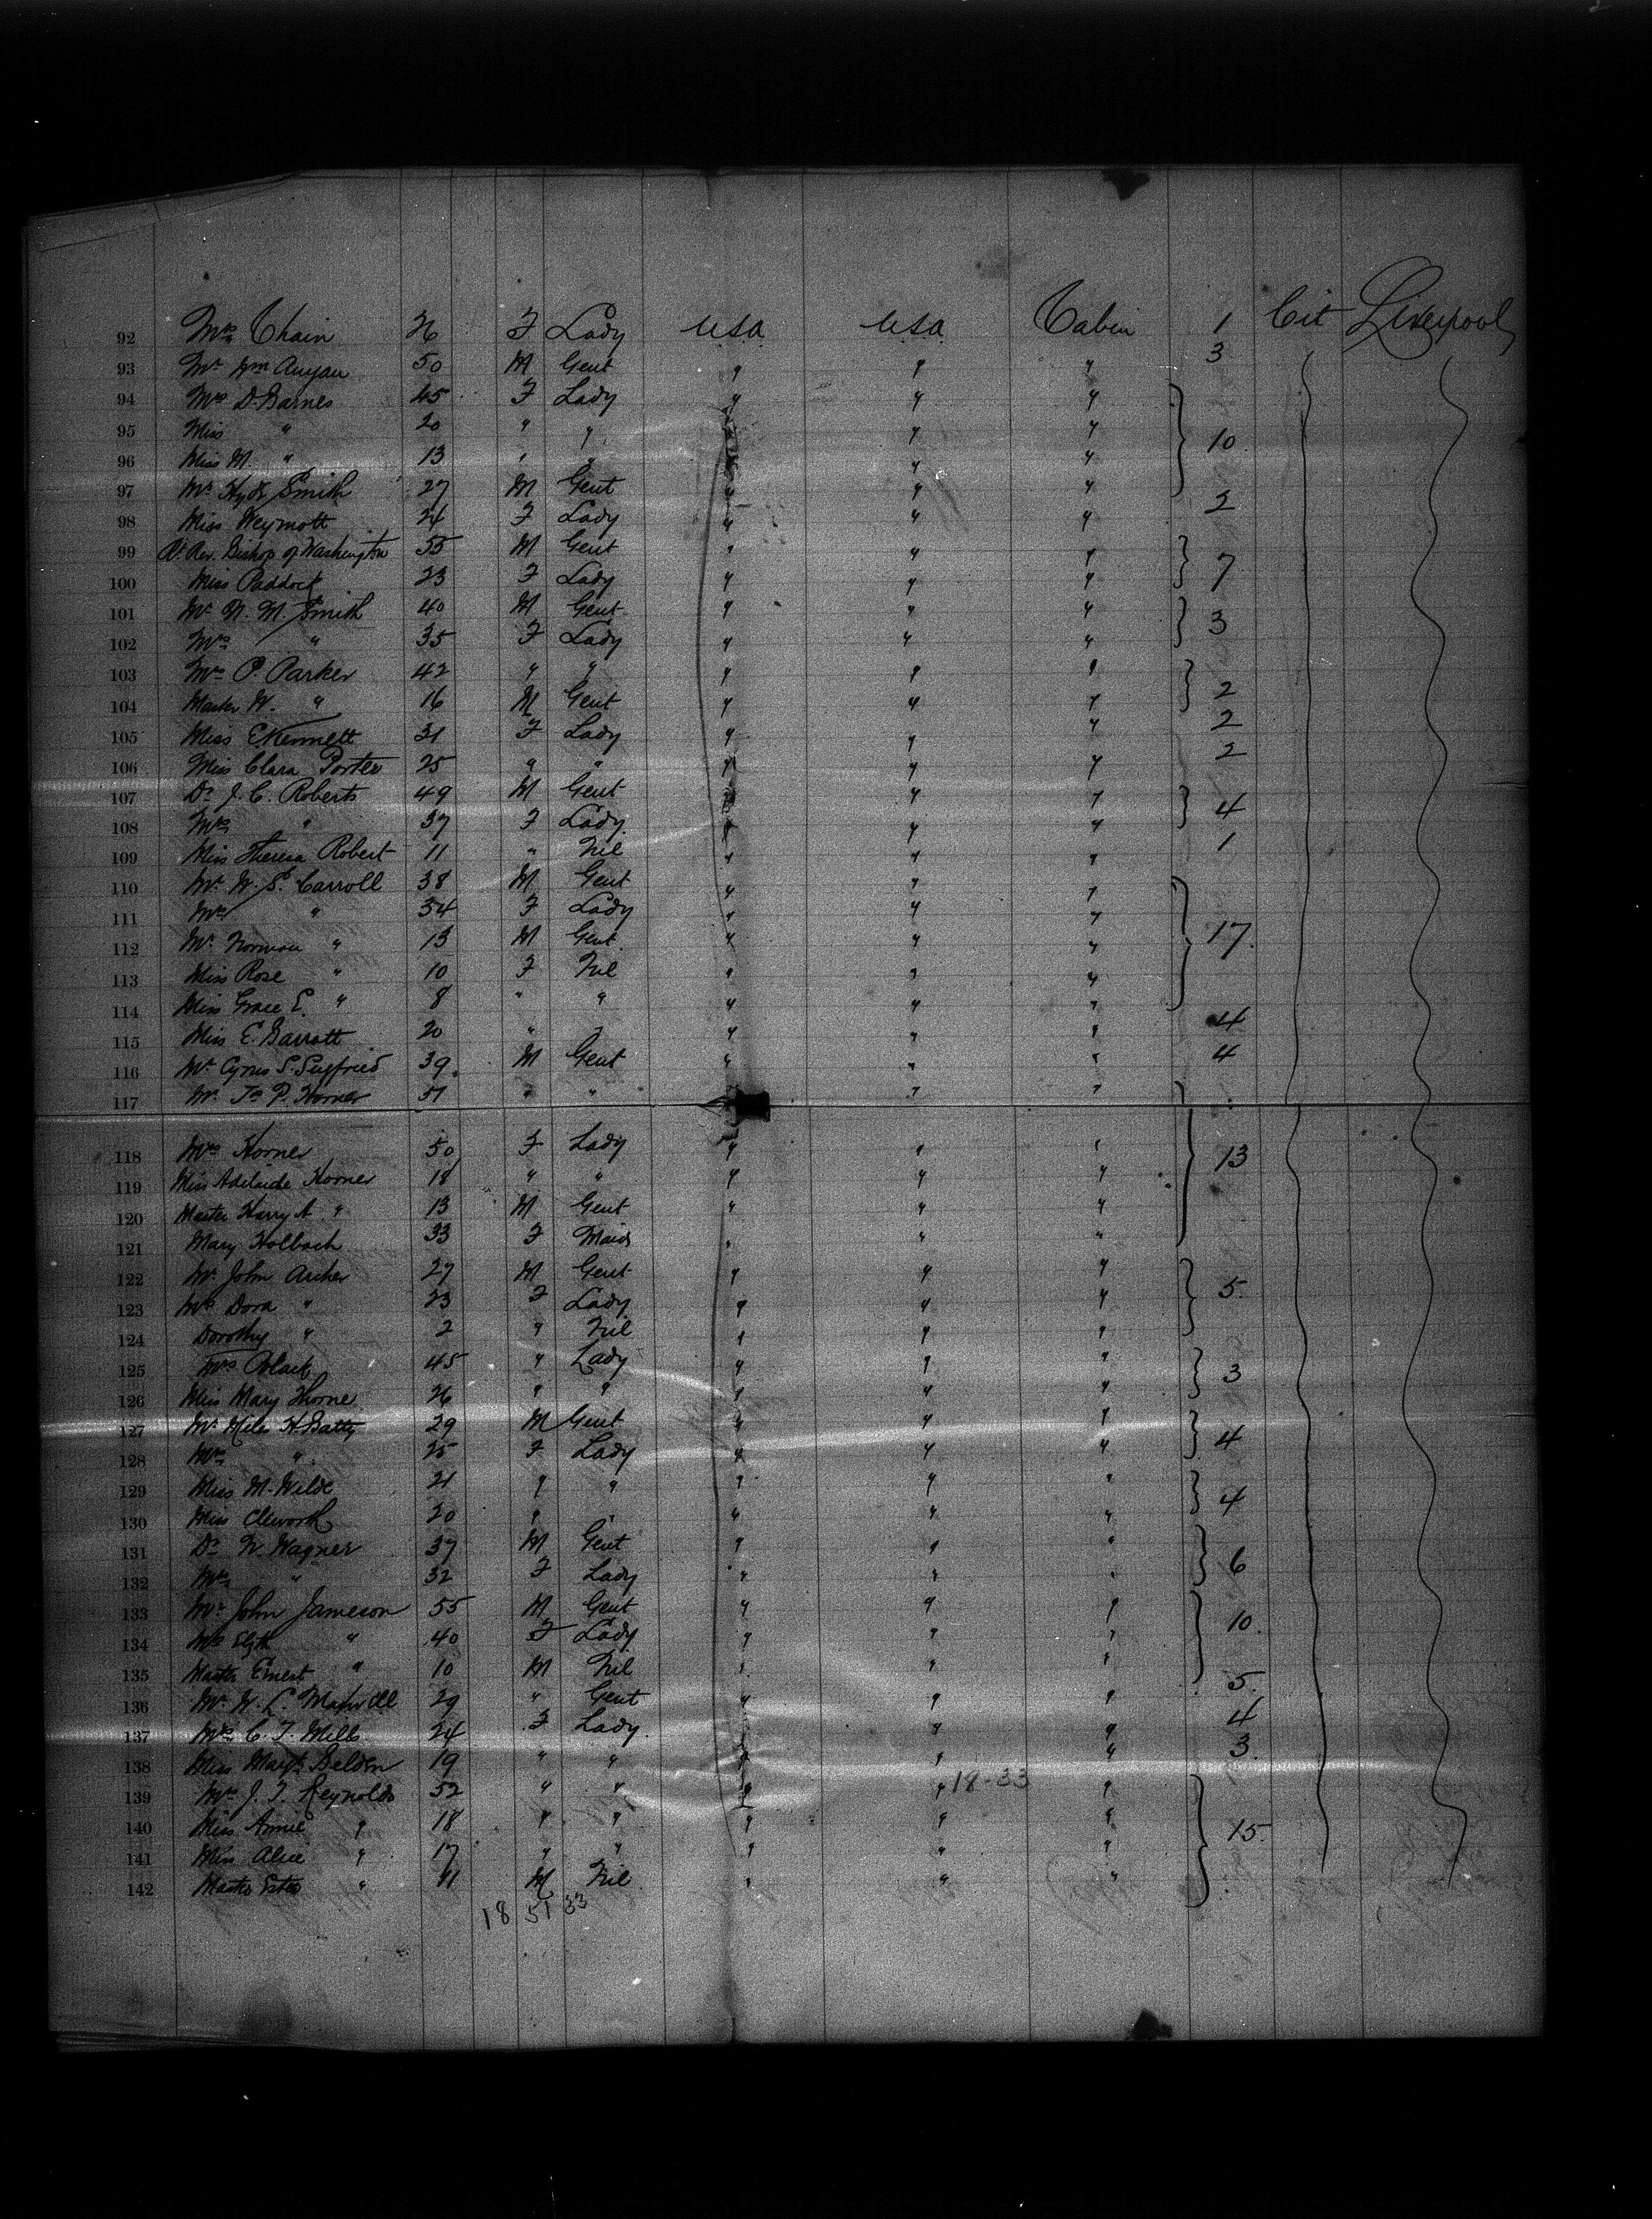 92 Mrs Chain 26 F Lady USA USA Cabin 1 Cit Liverpool
93 Mr Wm 50 M Gent " " " 3
94 Mrs D. Barnes 45 F Lady " " "
95 Miss " 20 " " " " " 10
96 Miss M. " 13 " " " " "
97 Mr Hyde Smith 27 M Gent " " "
98 Miss Weymott 24 F Lady " " " 2
99 Rt. Rev. Bishop of Washington 55 M Gent " " "
100 Miss Paddock 23 F Lady " " " 7
101 Mr N. M. Smith 40 M Gent " " "
102 Mrs " 35 F Lady " " " 3
103 Mrs P. Parker 42 " " " " "
104 Master W. " 16 M Gent " " " 2
105 Miss E Kennett 31 F Lady " " " 2
106 Miss Clara Porter 25 " " " " " 2
107 Dr J. C. Roberts 49 M Gent " " "
108 Mrs " 37 F Lady " " " 4
109 Miss Theresa Robert 11 " Nil " " " 1
110 Mr W. S. Carroll 38 M Gent " " "
111 Mrs " 34 F Lady " " "
112 Mr Norman " 13 M Gent " " " 17.
113 Miss Rose " 10 F Nil " " "
114 Miss Grace E. " 8 " " " " "
115 Miss E. Barratt 20 " " " " 4
116 Mr Cyrus S. Siegfried 39 M Gent " " " 4
117 Mr Js P. Horner 51 " " " " "
118 Mrs Horner 50 F Lady " " " 13
119 Miss Adelaide Horner 18 " " " " "
120 Master Harry A. " 13 M Gent " " "
121 Mary Holbach 33 F Maid " " "
122 Mr John Archer 27 M Gent " " "
123 Mrs Dora " 23 F Lady " " " 5.
124 Dorothy " 2 " Nil " " "
125 Mrs Black 45 " Lady " " "
126 Miss Mary Thorne 26 " " " " " 3
127 Mr Miles H. Batty 29 M Gent " " "
128 Mrs " 25 F Lady " " " 4
129 Miss M. Wilde 21 " " " " "
130 Miss Cleworth 20 " " " " " 4
131 Dr W. Wagner 37 M Gent " " "
132 Mrs " 32 F Lady " " " 6
133 Mr John Jameson 55 M Gent " " "
134 Mrs Elzth " 40 F Lady " " " 10.
135 Master Ernest " 10 M Nil " " "
136 Mr W. L. Maxwell 29 " Gent " " " 5.
137 Mrs C. T. Mills 24 F Lady " " " 4
138 Miss Margt. Belden 19 " " " " " 3.
139 Mrs J. T. Reynolds 52 " " " " 18-33 "
140 Miss Annie " 18 " " " " " 15.
141 Miss Alice " 17 " " " " "
142 Master " 11 M Nil " " "
18 51 33